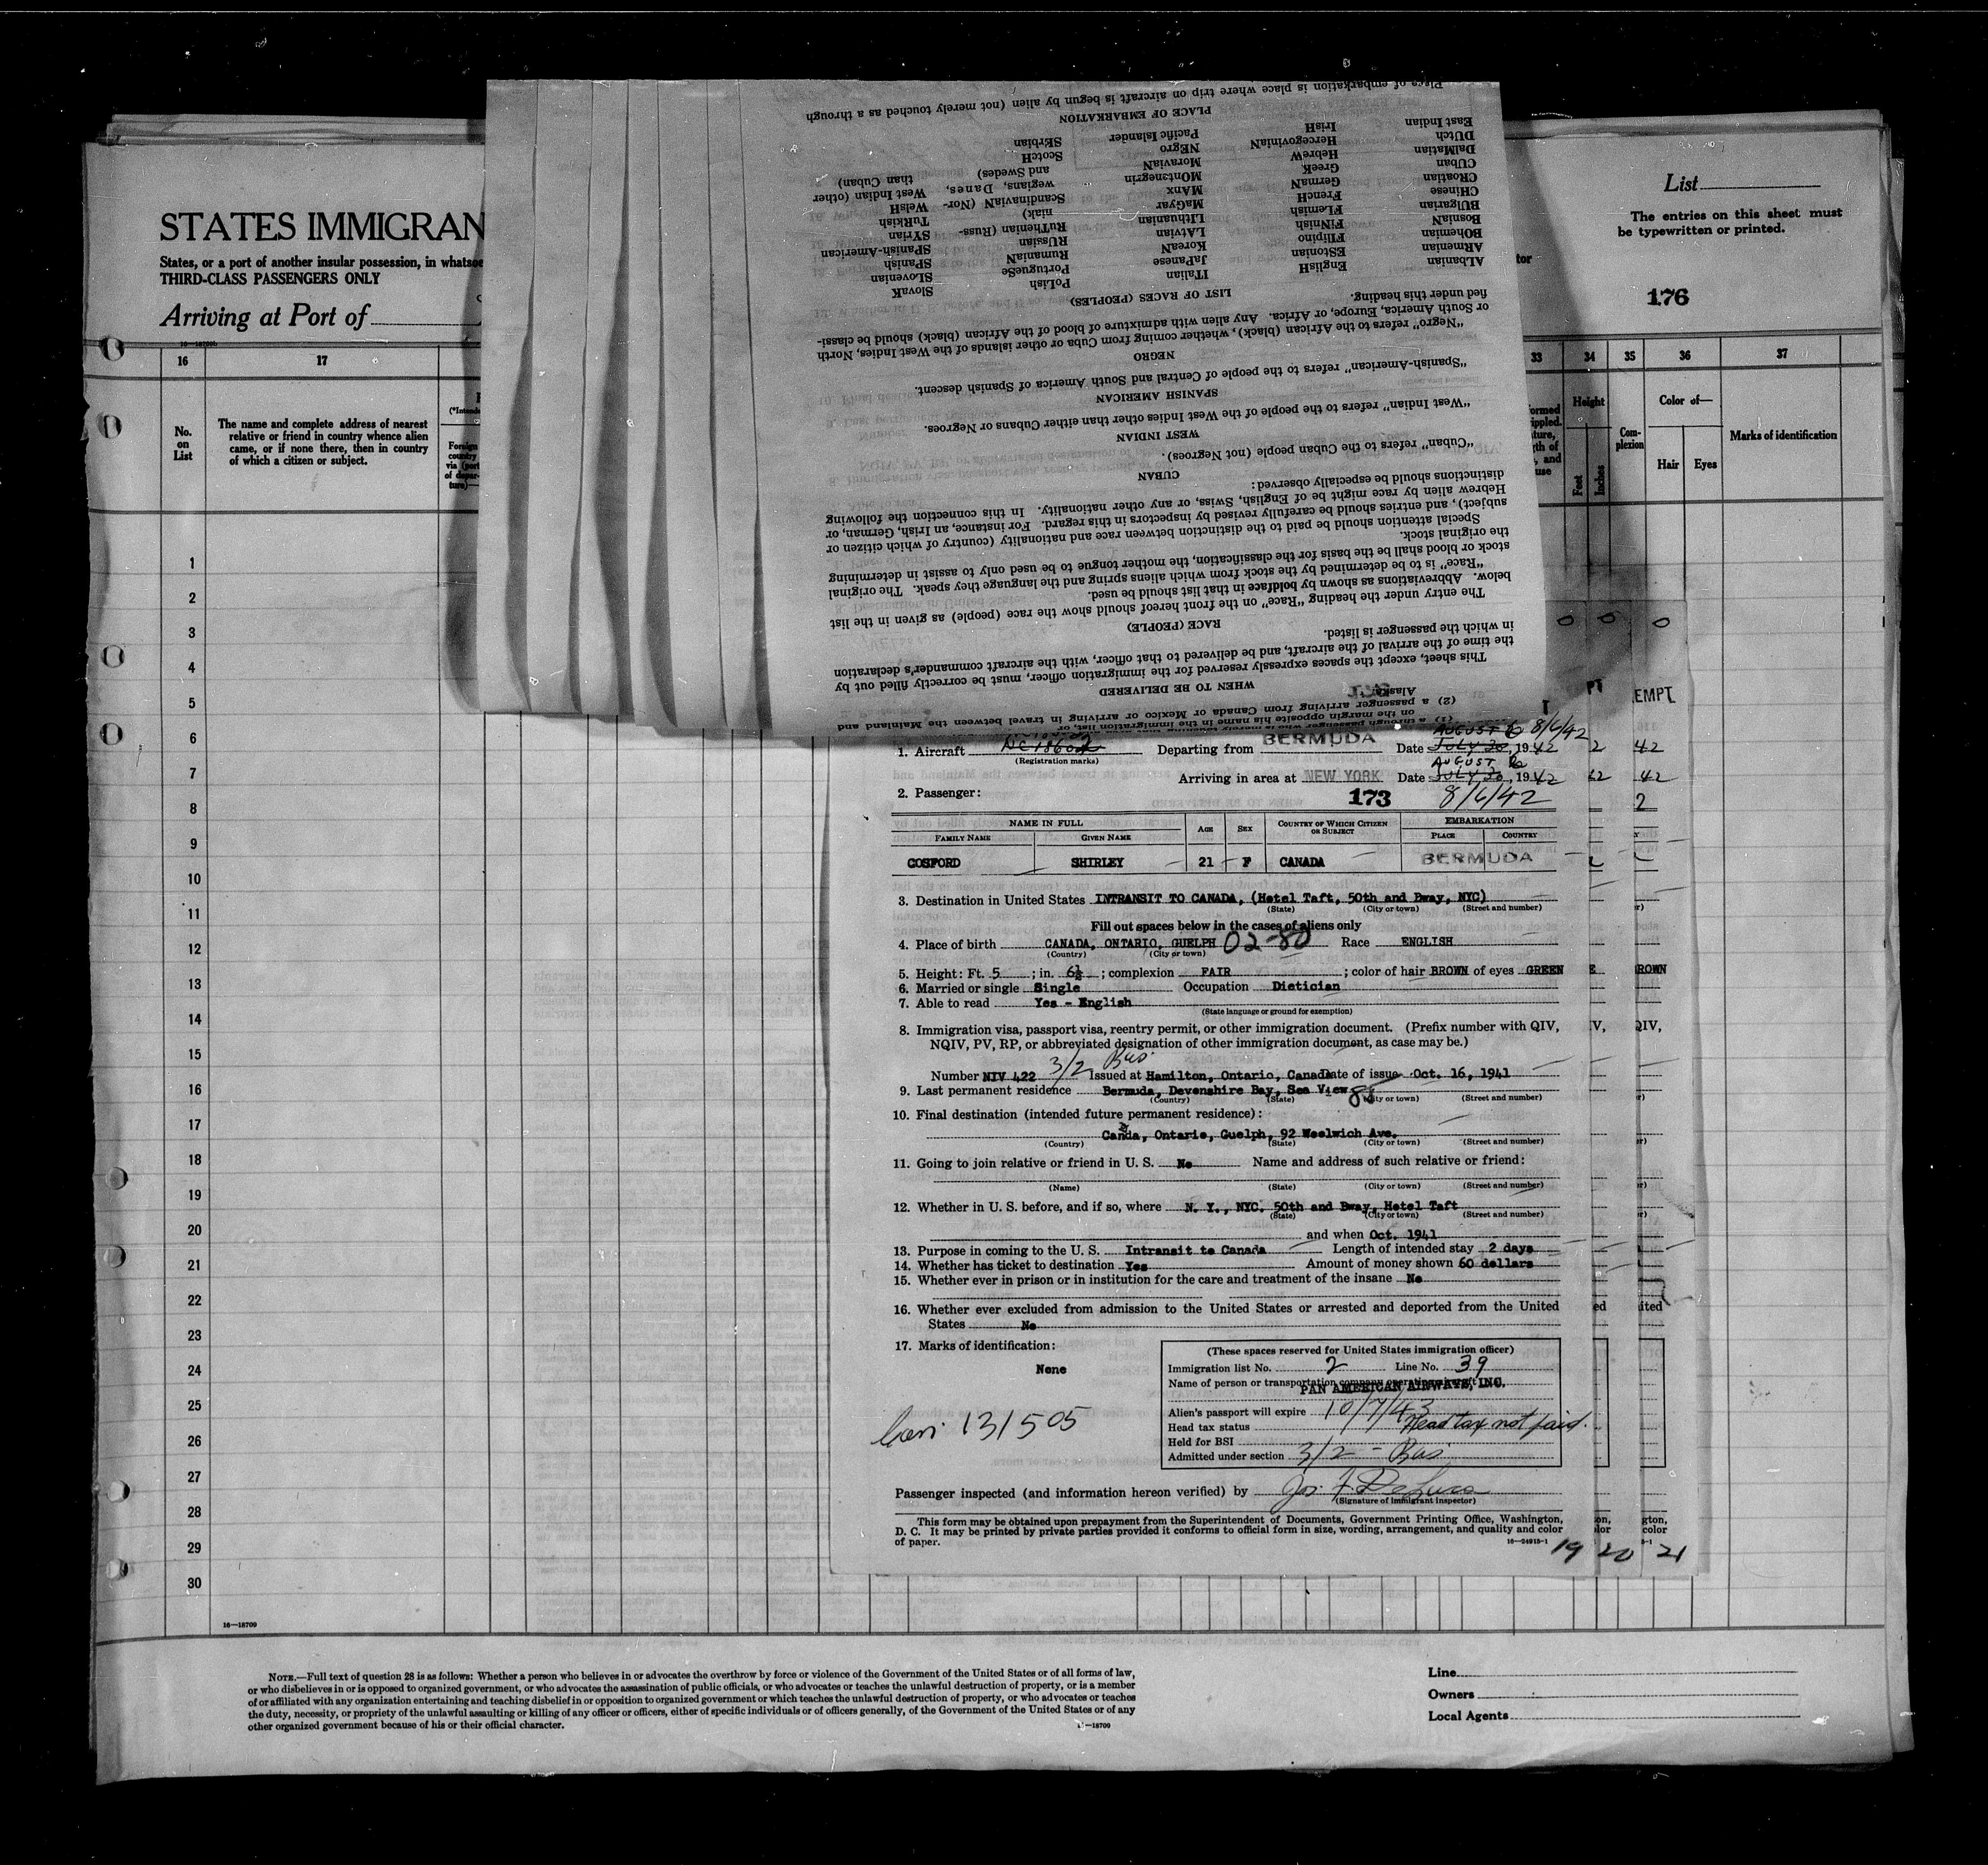 STATES IMMIGRAN
States, or a port of another insular possession, in whatsoe
THIRD-CLASS PASSENGERS ONLY
Arriving at Port of
16—18700
List
The entries on this sheet must
be typewritten or printed.
tor
176
16 17 33 34 35 36 37
No.
on
List
The name and complete address of nearest
relative or friend in country whence alien
came, or if none there, then in country
of which a citizen or subject.
(*Intende
Foreign
country
via (port
of depar-
ture)—
ormed
ippled.
ture,
gth of
, and
use
Height
Feet
Inches
Com-
plexion
Color of—
Hair Eyes
Marks of identification
1
2
3
4
5
6
7
8
9
10
11
12
13
14
15
16
17
18
19
20
21
22
23
24
25
26
27
28
29
30
(1) a through passenger
on the margin opposite his name in the immigration list, or
(2) a passenger arriving from Canada or Mexico or arriving in travel between the Mainland and
Alaska.
WHEN TO BE DELIVERED
This sheet, except the spaces expressly reserved for the immigration officer, must be correctly filled out by
the time of the arrival of the aircraft, and be delivered to that officer, with the aircraft commander's declaration
in which the passenger is listed.
RACE (PEOPLE)
The entry under the heading "Race" on the front hereof should show the race (people) as given in the list
below. Abbreviations as shown by boldface in that list should be used.
"Race" is to be determined by the stock from which aliens spring and the language they speak. The original
stock or blood shall be the basis for the classification, the mother tongue to be used only to assist in determining
the original stock.
Special attention should be paid to the distinction between race and nationality (country of which citizen or
subject), and entries should be carefully revised by inspectors in this regard. For instance, an Irish, German, or
Hebrew alien by race might be of English, Swiss, or any other nationality. In this connection the following
distinctions should be especially observed:
CUBAN
"Cuban" refers to the Cuban people (not Negroes).
WEST INDIAN
"West Indian" refers to the people of the West Indies other than either Cubans or Negroes.
SPANISH AMERICAN
"Spanish-American" refers to the people of Central and South America of Spanish descent.
NEGRO
"Negro" refers to the African (black), whether coming from Cuba or other islands of the West Indies, North
or South America, Europe, or Africa. Any alien with admixture of blood of the African (black) should be classi-
fied under this heading.
LIST OF RACES (PEOPLES)
ALbanian EngliSH ITalian PoLish SlovaK
ARmenian EStonian JaPanese PortugueSe SLOvenian
BOHemian FIlipino KoreaN RumaniaN SPaniSh
BosniaN FiNnish LAtvian RUssian SPanish-American
BUlgarian FLemish LIthuanian RuThenian (Russ- SYrian
CHinese FrencH MaGyar niak) TuRkish
CRoatian GermaN MAnx ScandinaviAN (Nor- WelsH
CUban GreeK MOntenegrin wegians, Danes, West Indian (other
DalMatian HebreW MoraviaN and Swedes) than Cuban)
DUtch HercegoviniaN NEgro ScotcH
East Indian IrisH Pacific Islander SErbian
PLACE OF EMBARKATION
Place of embarkation is place where trip on aircraft is begun by alien (not merely touched as a through
1. Aircraft NC18602 Departing from BERMUDA Date JULY 30, 1942 AUGUST 6 8/6/42
(Registration marks)
Arriving in area at NEW YORK Date JULY 30, 1942 AUGUST 6
2. Passenger: 173 8/6/42
NAME IN FULL AGE SEX COUNTRY OF WHICH CITIZEN OR SUBJECT EMBARKATION
FAMILY NAME GIVEN NAME PLACE COUNTRY
COSFORD SHIRLEY 21 F CANADA BERMUDA
3. Destination in United States INTRANSIT TO CANADA, (Hotel Taft, 50th and Bway, NYC)
(State) (City or town) (Street and number)
Fill out spaces below in the cases of aliens only
4. Place of birth CANADA, ONTARIO, GUELPH 02-80 Race ENGLISH
(Country) (City or town)
5. Height: Ft. 5 ; in. 6½ ; complexion FAIR ; color of hair BROWN of eyes GREEN
6. Married or single Single Occupation Dietician
7. Able to read Yes - English
(State language or ground for exemption)
8. Immigration visa, passport visa, reentry permit, or other immigration document. (Prefix number with QIV,
NQIV, PV, RP, or abbreviated designation of other immigration document, as case may be.)
3/2 Bus.
Number NIV 422 Issued at Hamilton, Ontario, Canada Date of issue Oct. 16, 1941
9. Last permanent residence Bermuda, Devonshire Bay, Sea View
(Country) (State) (City or town) (Street and number)
10. Final destination (intended future permanent residence):
Canda, Ontario, Guelph, 92 Woolwich Ave.
(Country) (State) (City or town) (Street and number)
11. Going to join relative or friend in U. S. No Name and address of such relative or friend:
(Name) (State) (City or town) (Street and number)
12. Whether in U. S. before, and if so, where N. Y., NYC. 50th and Bway, Hotel Taft
(State) (City or town) (Street and number)
and when Oct. 1941
13. Purpose in coming to the U. S. Intransit to Canada Length of intended stay 2 days
14. Whether has ticket to destination Yes Amount of money shown 60 dollars
15. Whether ever in prison or in institution for the care and treatment of the insane No
16. Whether ever excluded from admission to the United States or arrested and deported from the United
States No
17. Marks of identification:
None
(These spaces reserved for United States immigration officer)
Immigration list No. 2 Line No. 39
Name of person or transportation company operating aircraft
PAN AMERICAN AIRWAYS, INC.
Alien's passport will expire 10/7/43
Head tax status Head tax not paid.
Held for BSI
Admitted under section 3/2 - Bus
131505
Passenger inspected (and information hereon verified) by Jos. F. DeLuca
(Signature of immigrant inspector)
This form may be obtained upon prepayment from the Superintendent of Documents, Government Printing Office, Washington,
D. C. It may be printed by private parties provided it conforms to official form in size, wording, arrangement, and quality and color
of paper.
16—24915-1
19 20 21
EMPT
42
42
2
ROWN
QIV,
ited
gton,
color
16—18700
NOTE.—Full text of question 28 is as follows: Whether a person who believes in or advocates the overthrow by force or violence of the Government of the United States or of all forms of law,
or who disbelieves in or is opposed to organized government, or who advocates the assassination of public officials, or who advocates or teaches the unlawful destruction of property, or is a member
of or affiliated with any organization entertaining and teaching disbelief in or opposition to organized government or which teaches the unlawful destruction of property, or who advocates or teaches
the duty, necessity, or propriety of the unlawful assaulting or killing of any officer or officers, either of specific individuals or of officers generally, of the Government of the United States or of any
other organized government because of his or their official character.
Line
Owners
Local Agents